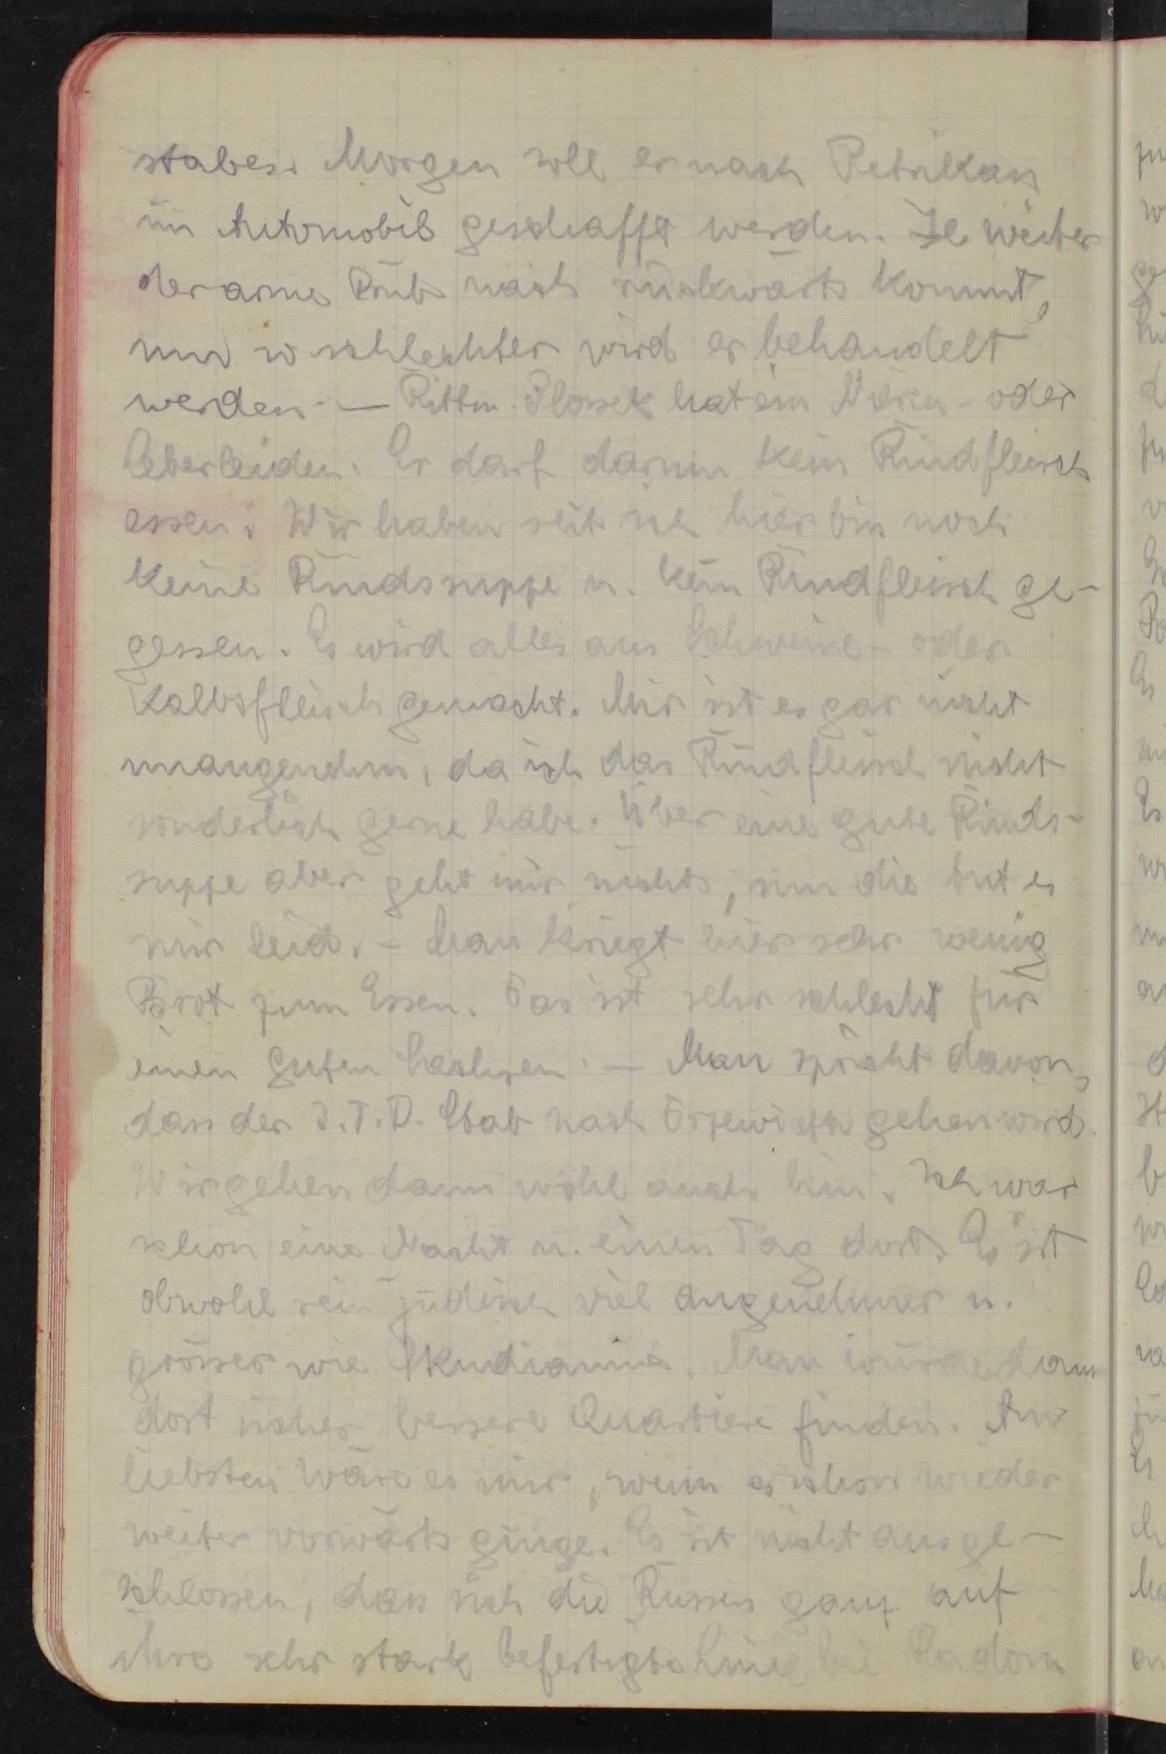 stabes. Morgen soll er nach Petrikau
im Automobil geschafft werden. Je weiter
der arme Bub nach rückwärts kommt,
um so schlechter wird er behandelt
werden. — Rittm. Plossek hat ein Nieren- oder
Leberleiden. Er darf darum kein Rindfleisch
essen. Wir haben seit ich hier bin noch
keine Rindssuppe u. kein Rindfleisch ge-
gessen. Es wird alles aus Schweine- oder
Kalbsfleisch gemacht. Mir ist es gar nicht
unangenehm, da ich das Rindfleisch nicht
sonderlich gerne habe. Über eine gute Rinds-
suppe aber geht mir nichts, um die tut es
mir leid. – Man kriegt hier sehr wenig
Brot zum Essen. Das ist sehr schlecht für
einen guten Magen. — Man spricht davon,
dass der I.T.D. Stab nach gehen wird.
Wir gehen dann wohl auch hin. Ich war
schon eine Nacht u. einen Tag dort. Es ist
obwohl rein jüdisch viel angenehmer u.
grösser wie Skudianna. Man würde dann
dort sicher bessere Quartiere finden. Am
liebsten wäre es mir, wenn es schon wieder
weiter vorwärts ginge. Es ist nicht ausge-
schlossen, dass sich die Russen ganz auf
ihre sehr stark befestigte Linie bei Radom